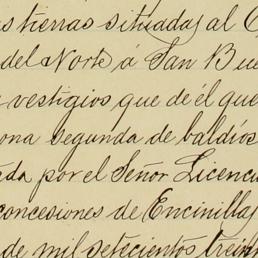 s tierras situadas al O
del Norte á San Bue
vestigios que de él que
ona segunda de baldíos
da por el Señor Licenci
concesiones de Encinillas
de mil setecientos trein